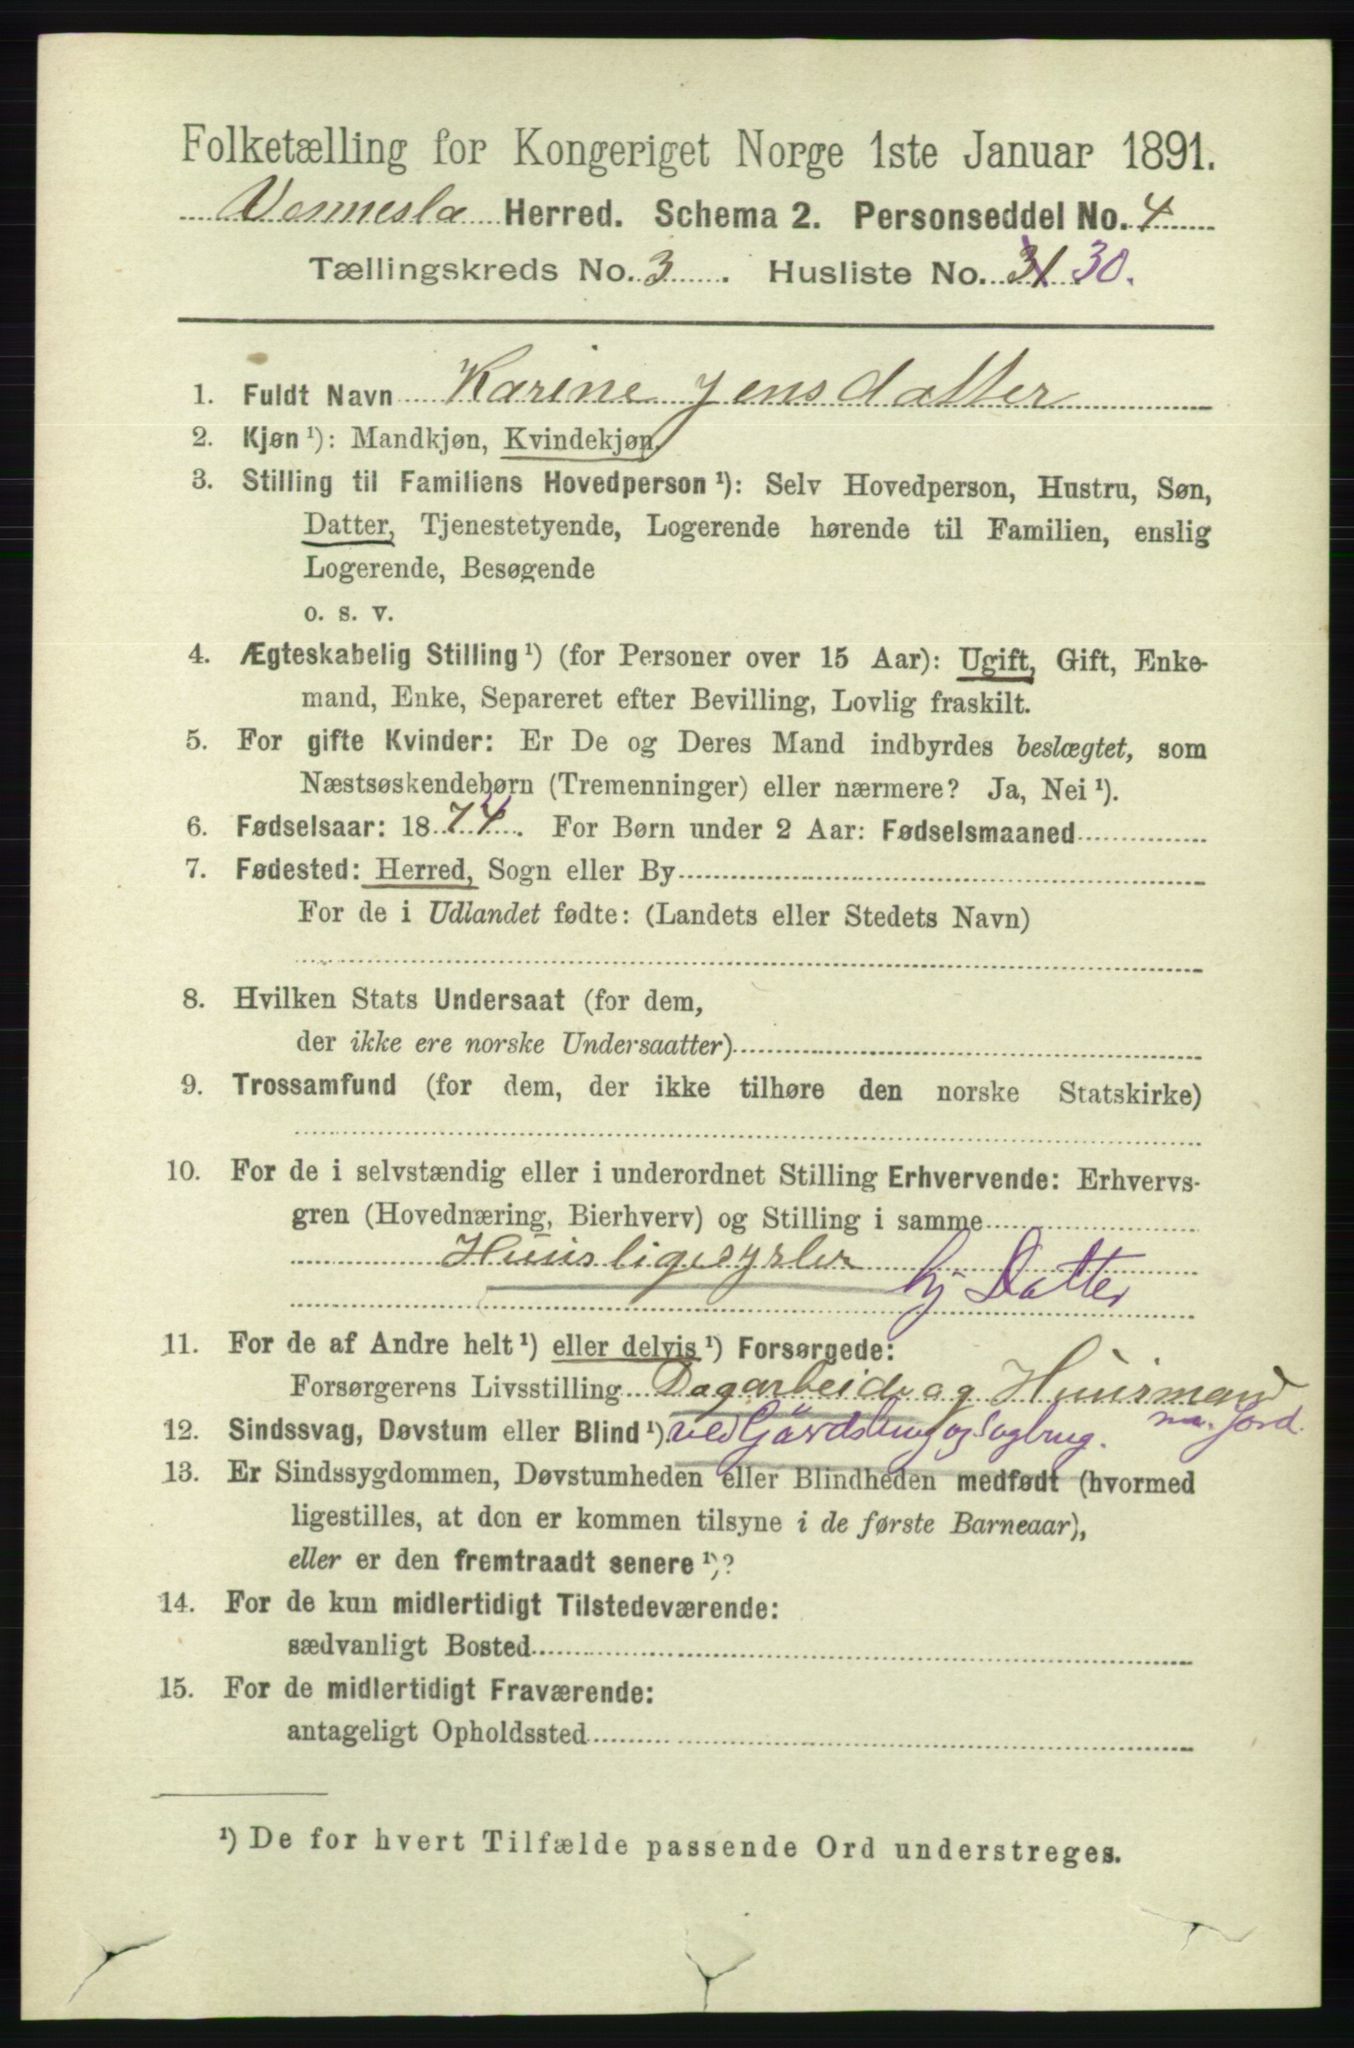 Folketælling for Kongeriget Norge 1ste Januar 1891.
Vennesla Herred. Schema 2. Personseddel No. 4
Tællingskreds No. 3. Husliste No. 31 30.
1. Fuldt Navn Karine Jensdatter
2. Kjøn ¹): Mandkjøn, Kvindekjøn.
3. Stilling til Familiens Hovedperson ¹): Selv Hovedperson, Hustru, Søn,
Datter, Tjenestetyende, Logerende hørende til Familien, enslig
Logerende, Besøgende
o. s. v.
4. Ægteskabelig Stilling ¹) (for Personer over 15 Aar): Ugift, Gift, Enke-
mand, Enke, Separeret efter Bevilling, Lovlig fraskilt.
5. For gifte Kvinder: Er De og Deres Mand indbyrdes beslægtet, som
Næstsøskendebørn (Tremenninger) eller nærmere? Ja, Nei ¹).
6. Fødselsaar: 1874. For Børn under 2 Aar: Fødselsmaaned
7. Fødested: Herred, Sogn eller By
For de i Udlandet fødte: (Landets eller Stedets Navn)
8. Hvilken Stats Undersaat (for dem,
der ikke ere norske Undersaatter)
9. Trossamfund (for dem, der ikke tilhøre den norske Statskirke)
10. For de i selvstændig eller i underordnet Stilling Erhvervende: Erhvervs-
gren (Hovednæring, Bierhverv) og Stilling i samme
Huusligesysler
hj Datter
11. For de af Andre helt ¹) eller delvis ¹) Forsørgede:
Forsørgerens Livsstilling Dagarbeide og Huusmand
m. Jord.
12. Sindssvag, Døvstum eller Blind ¹) ved Gårdsbrug og Sagbrug.
13. Er Sindssygdommen, Døvstumheden eller Blindheden medfødt (hvormed
ligestilles, at den er kommen tilsyne i de første Barneaar),
eller er den fremtraadt senere ¹)?
14. For de kun midlertidigt Tilstedeværende:
sædvanligt Bosted
15. For de midlertidigt Fraværende:
antageligt Opholdssted
¹) De for hvert Tilfælde passende Ord understreges.